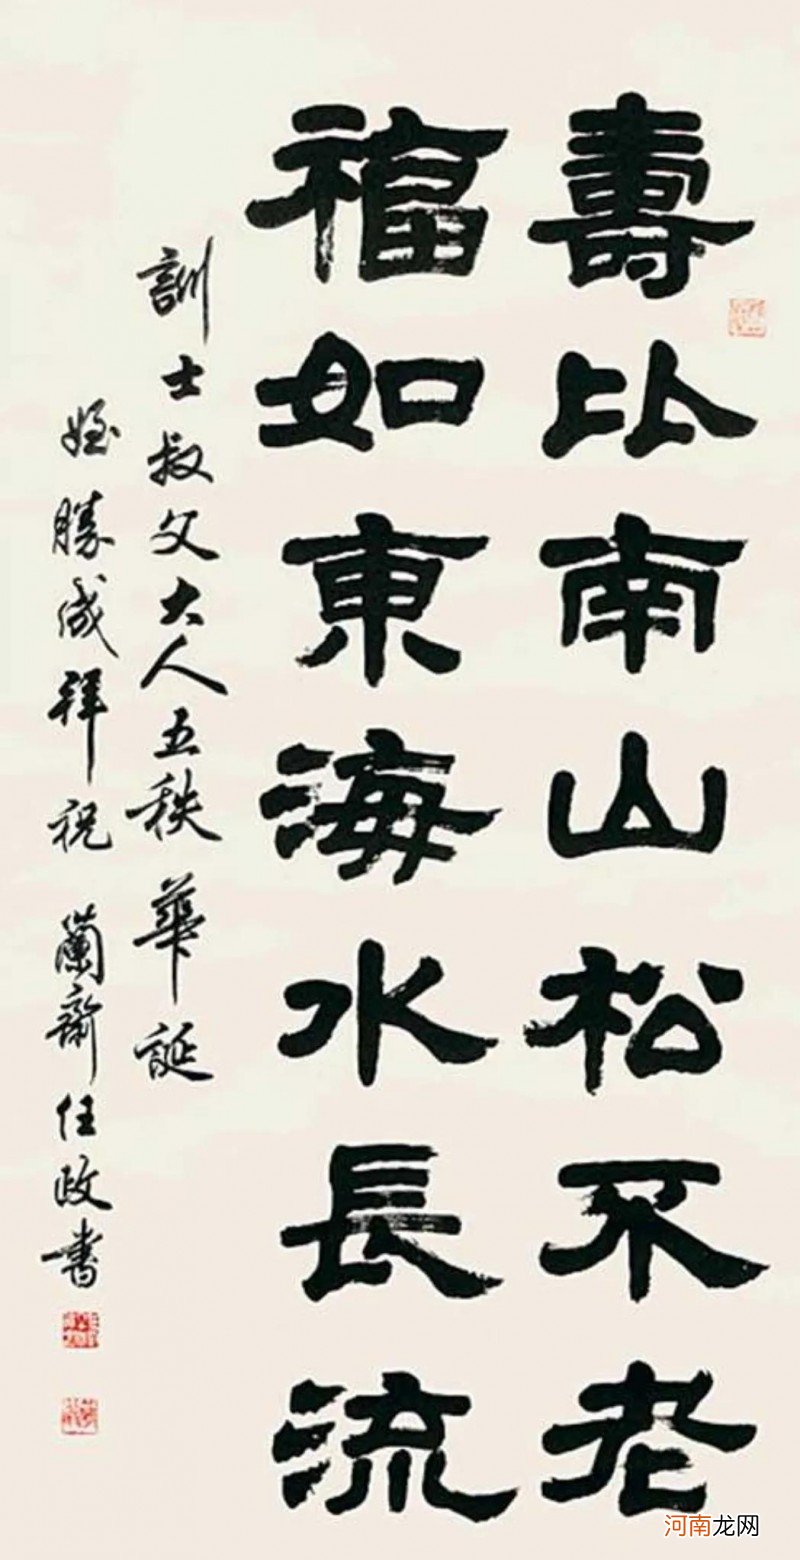 壽比南山松不老
福如東海水長流
訓士叔父大人五秩華誕
姪勝成拜祝 蘭齋任政書
河南龙网